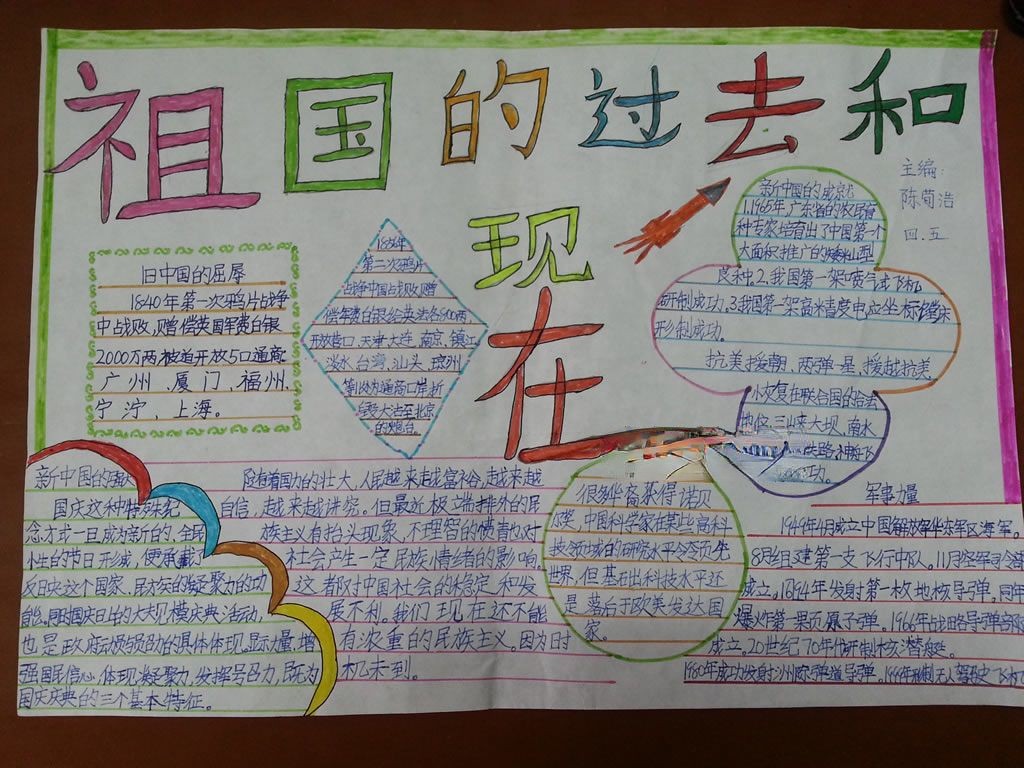 祖国的过去和
现
在
主编:
陈荀浩
四.五
旧中国的屈辱
1840年第一次鸦片战争
中战败,赔偿英国军费白银
2000万两被迫开放5口通商
广州、厦门、福州、
宁泞、上海。
1856年
第二次鸦片
战争中国战败,赔
偿军费白银给英法各800两,
开放营口,天津大连、南京、镇江、
淡水、台湾、汕头、琼州
等以为通商口岸拆
毁大沽至北京
的炮台。
新中国的成就
1.1965年,广东省的农民育
种专家培育出了中国第一个
大面积推广的矮秆山型
良种.2.我国第一架喷气式飞机
研制成功.3.我国第一架高米精度电应坐标镗床
形制成功。
抗美援朝、两弹一星、援越抗美
恢复在联合国的合法
地位、三峡大坝、南水
铁路
功。
新中国的
国庆这种特殊纪
念方式一旦成为新的、全民
性的节日形成,便承载了
反映这个国家、民族的凝聚力的功
能.同时国庆日上的大规模庆典活动,
也是政府动员与号召的具体体现.显示力量、增
强国民信心,体现凝聚力,发挥号召力,既为
国庆庆典的三个基本特征。
随着国力的壮大,人民越来越富裕,越来越
自信,越来越讲究。但最近极端排外的民
族主义有抬头现象,不理智的愤青也对
社会产生一定民族情绪的影响,
这都对中国社会的稳定和发
展不利。我们现在还不能
有浓重的民族主义。因为时
机未到。
很多华裔获得诺贝
奖,中国科学家在某些高科
技领域的研究水平令领先
世界,但基础科技水平还
是落后于欧美发达国
家。
军事力量
1949年4月成立中国解放军华东军区海军。
8月组建第一支飞行中队。11月空军司令部
成立。1964年发射第一枚地核导弹。同年
爆炸第一颗原子弹。1966年战略导弹部队
成立。20世纪70年代研制核潜艇。
1980年成功发射洲际弹道导弹。